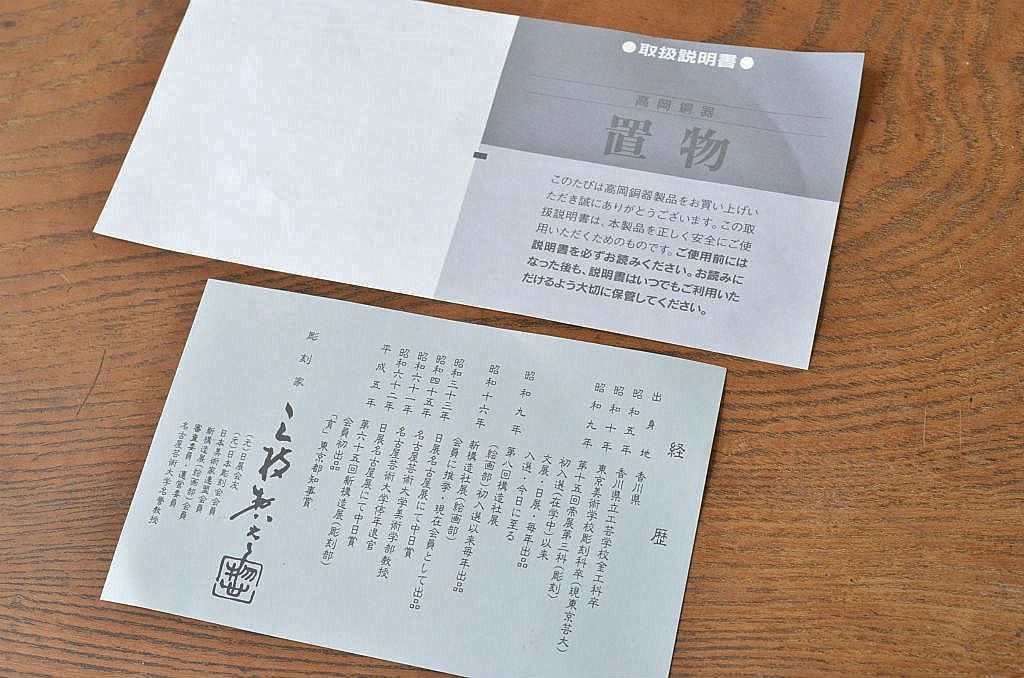 ●取扱説明書●
高岡銅器
置物
このたびは高岡銅器製品をお買い上げい
ただき誠にありがとうございます。この取
扱説明書は、本製品を正しく安全にご使
用いただくためのものです。ご使用前には
説明書を必ずお読みください。お読みに
なった後も、説明書はいつでもご利用いた
だけるよう大切に保管してください。
経歴
出身地 香川県
昭和五年 香川県立工芸学校金工科卒
昭和十年 東京美術学校彫刻科卒(現東京芸大)
昭和九年 第十五回帝展第三科(彫刻)
初入選(在学中)以来
文展・日展・毎年出品
入選・今日に至る
昭和九年 第八回構造社展
(絵画部)初入選以来毎年出品
昭和十六年 新構造社展(絵画部)
会員に推挙・現在会員として出品
昭和三十三年 日展名古屋展にて中日賞
昭和四十五年 名古屋芸術大学美術学部教授
昭和六十一年 日展名古屋展にて中日賞
昭和六十二年 名古屋芸術大学停年退官
平成五年 第六十五回新構造展(彫刻部)
会員初出品
「貴」東京都知事賞
彫刻家
(元)日展会友
(元)日本彫刻会会員
日本美術家連盟会員
新構造展(絵画部)会員
審査委員・運営委員
名古屋芸術大学名誉教授